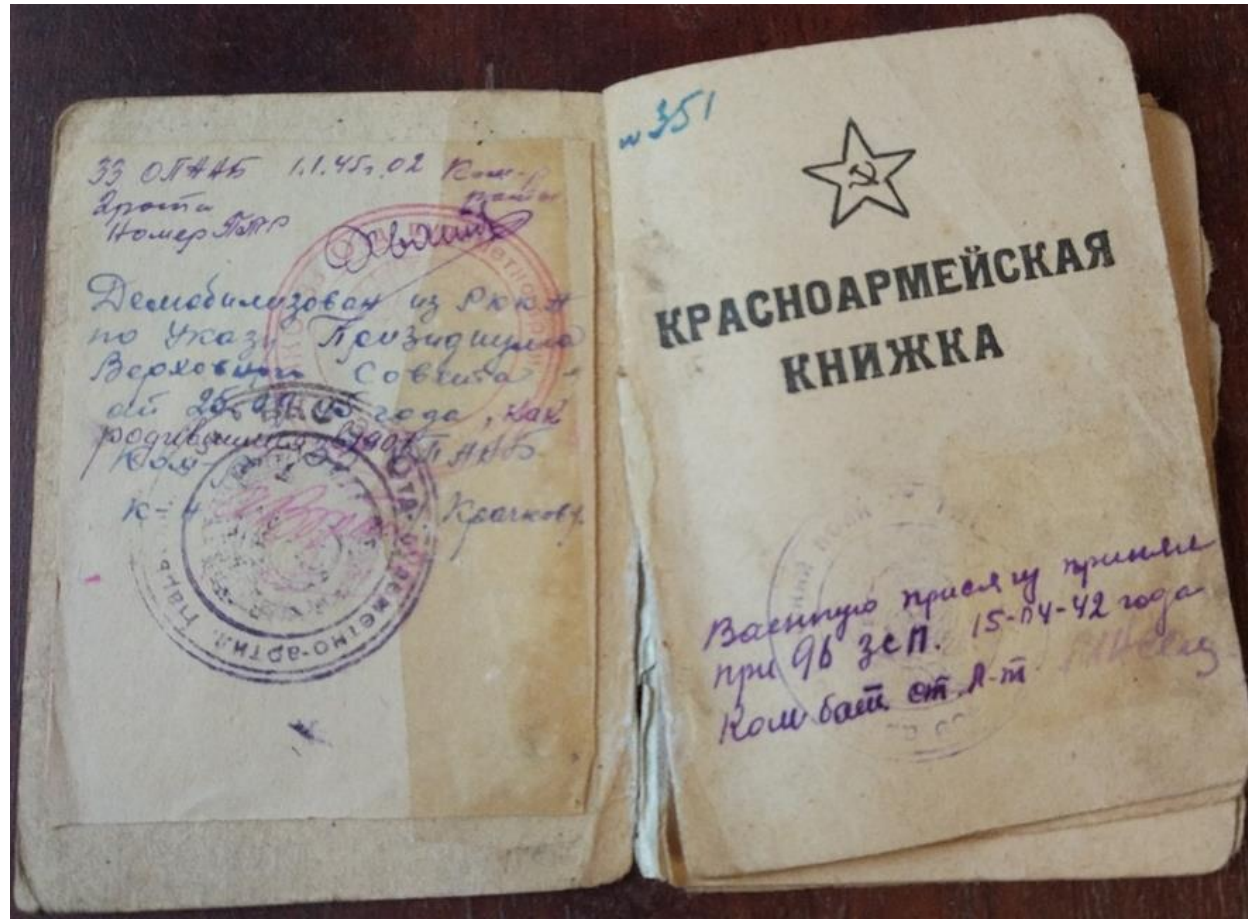 33 ОПААБ 1.1.45г. 02 Ком-р
2 рота роты
Номер ПТР
Демобилизован из РККА
по Указу Президиума
Верховного Совета
от 25.09.45 года, как
родившийся
Ком- ОПААБ
к-н Крачков
Отд. пулеметно-артил.
№ 351
КРАСНОАРМЕЙСКАЯ
КНИЖКА
Военную присягу принял
при 96 ЗСП. 15-04-42 года
Комбат ст. л-т